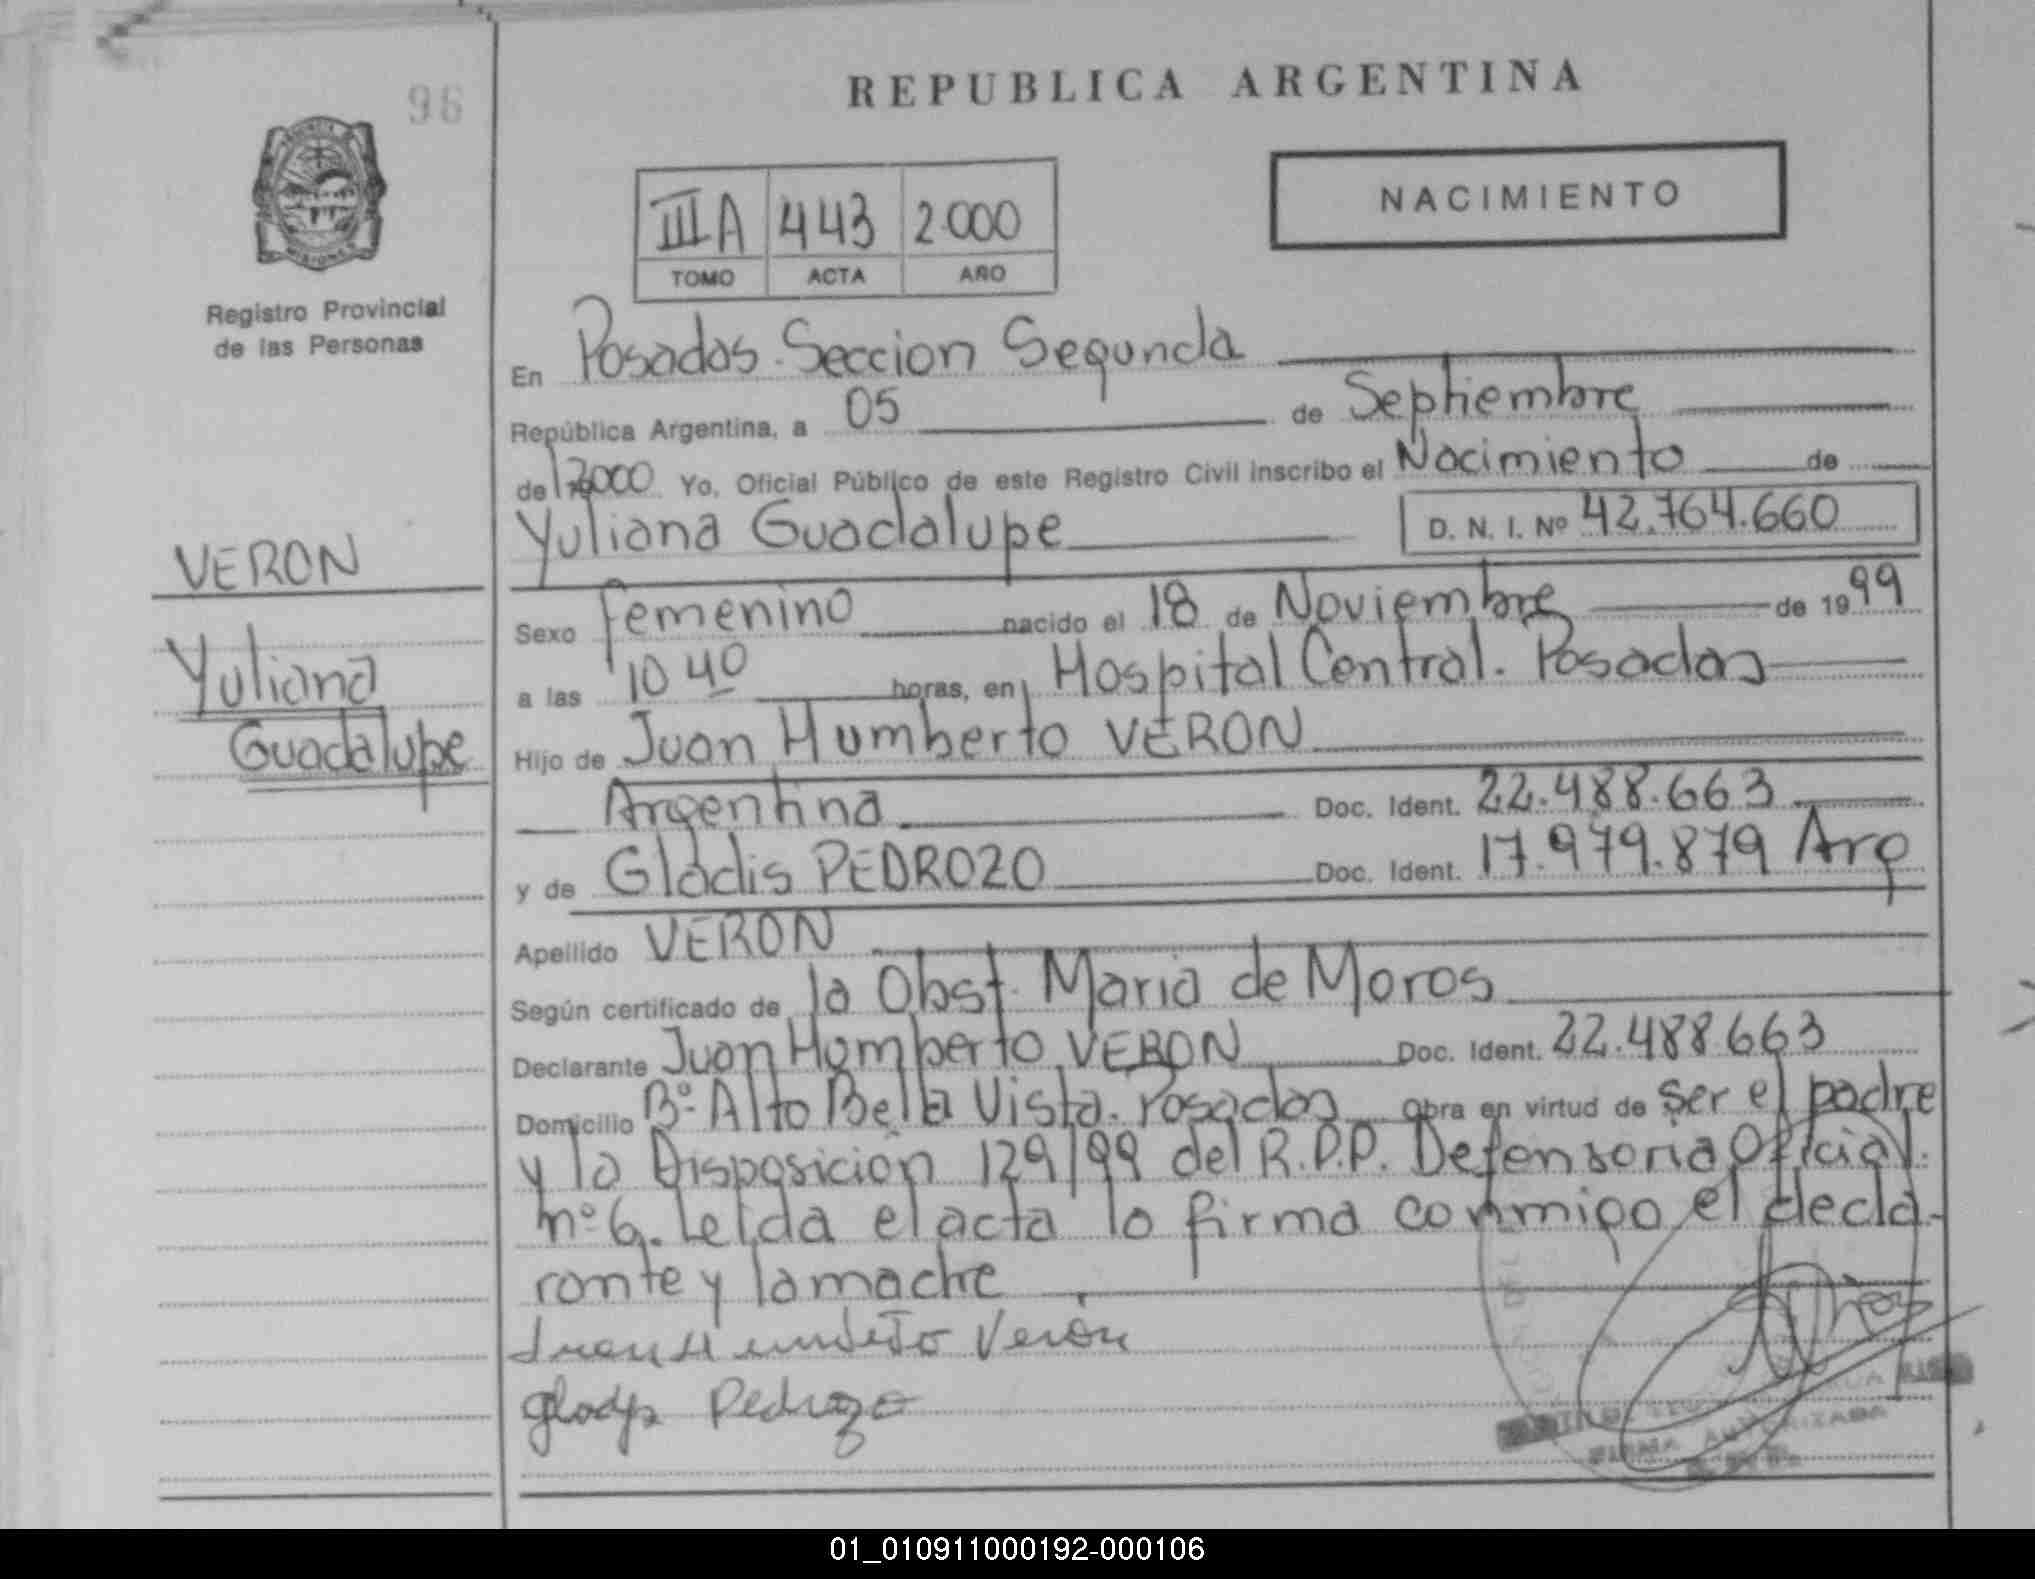 96
REPUBLICA ARGENTINA
NACIMIENTO
IIIA 443 2.000
TOMO ACTA AÑO
Registro Provincial
de las Personas
En Posadas. Seccion Segunda
República Argentina, a 05 de Septiembre
de 2000 Yo, Oficial Público de este Registro Civil inscribo el Nacimiento de
Yuliana Guadalupe D. N. I. Nº 42.764.660
VERON
Yuliana
Guadalupe
Sexo femenino nacido el 18 de Noviembre de 1999
a las 10 40 horas, en Hospital Central. Posadas
Hijo de Juan Humberto VERON
Argentina Doc. Ident. 22.488.663
y de Gladis PEDROZO Doc. Ident. 17.979.879 Arg
Apellido VERON
Según certificado de la Obst. Maria de Moros
Declarante Juan Humberto VERON Doc. Ident. 22.488.663
Domicilio Bº Alto Bella Vista. Posadas Obra en virtud de ser el padre
y la Disposición 129/99 del R.P.P. Defensoria Oficial.
nº 6. Leida el acta lo firma conmigo el decla-
rante y la madre
Juan Humberto Verón
gladys Pedrozo
FIRMA AUTORIZADA
01_010911000192-000106